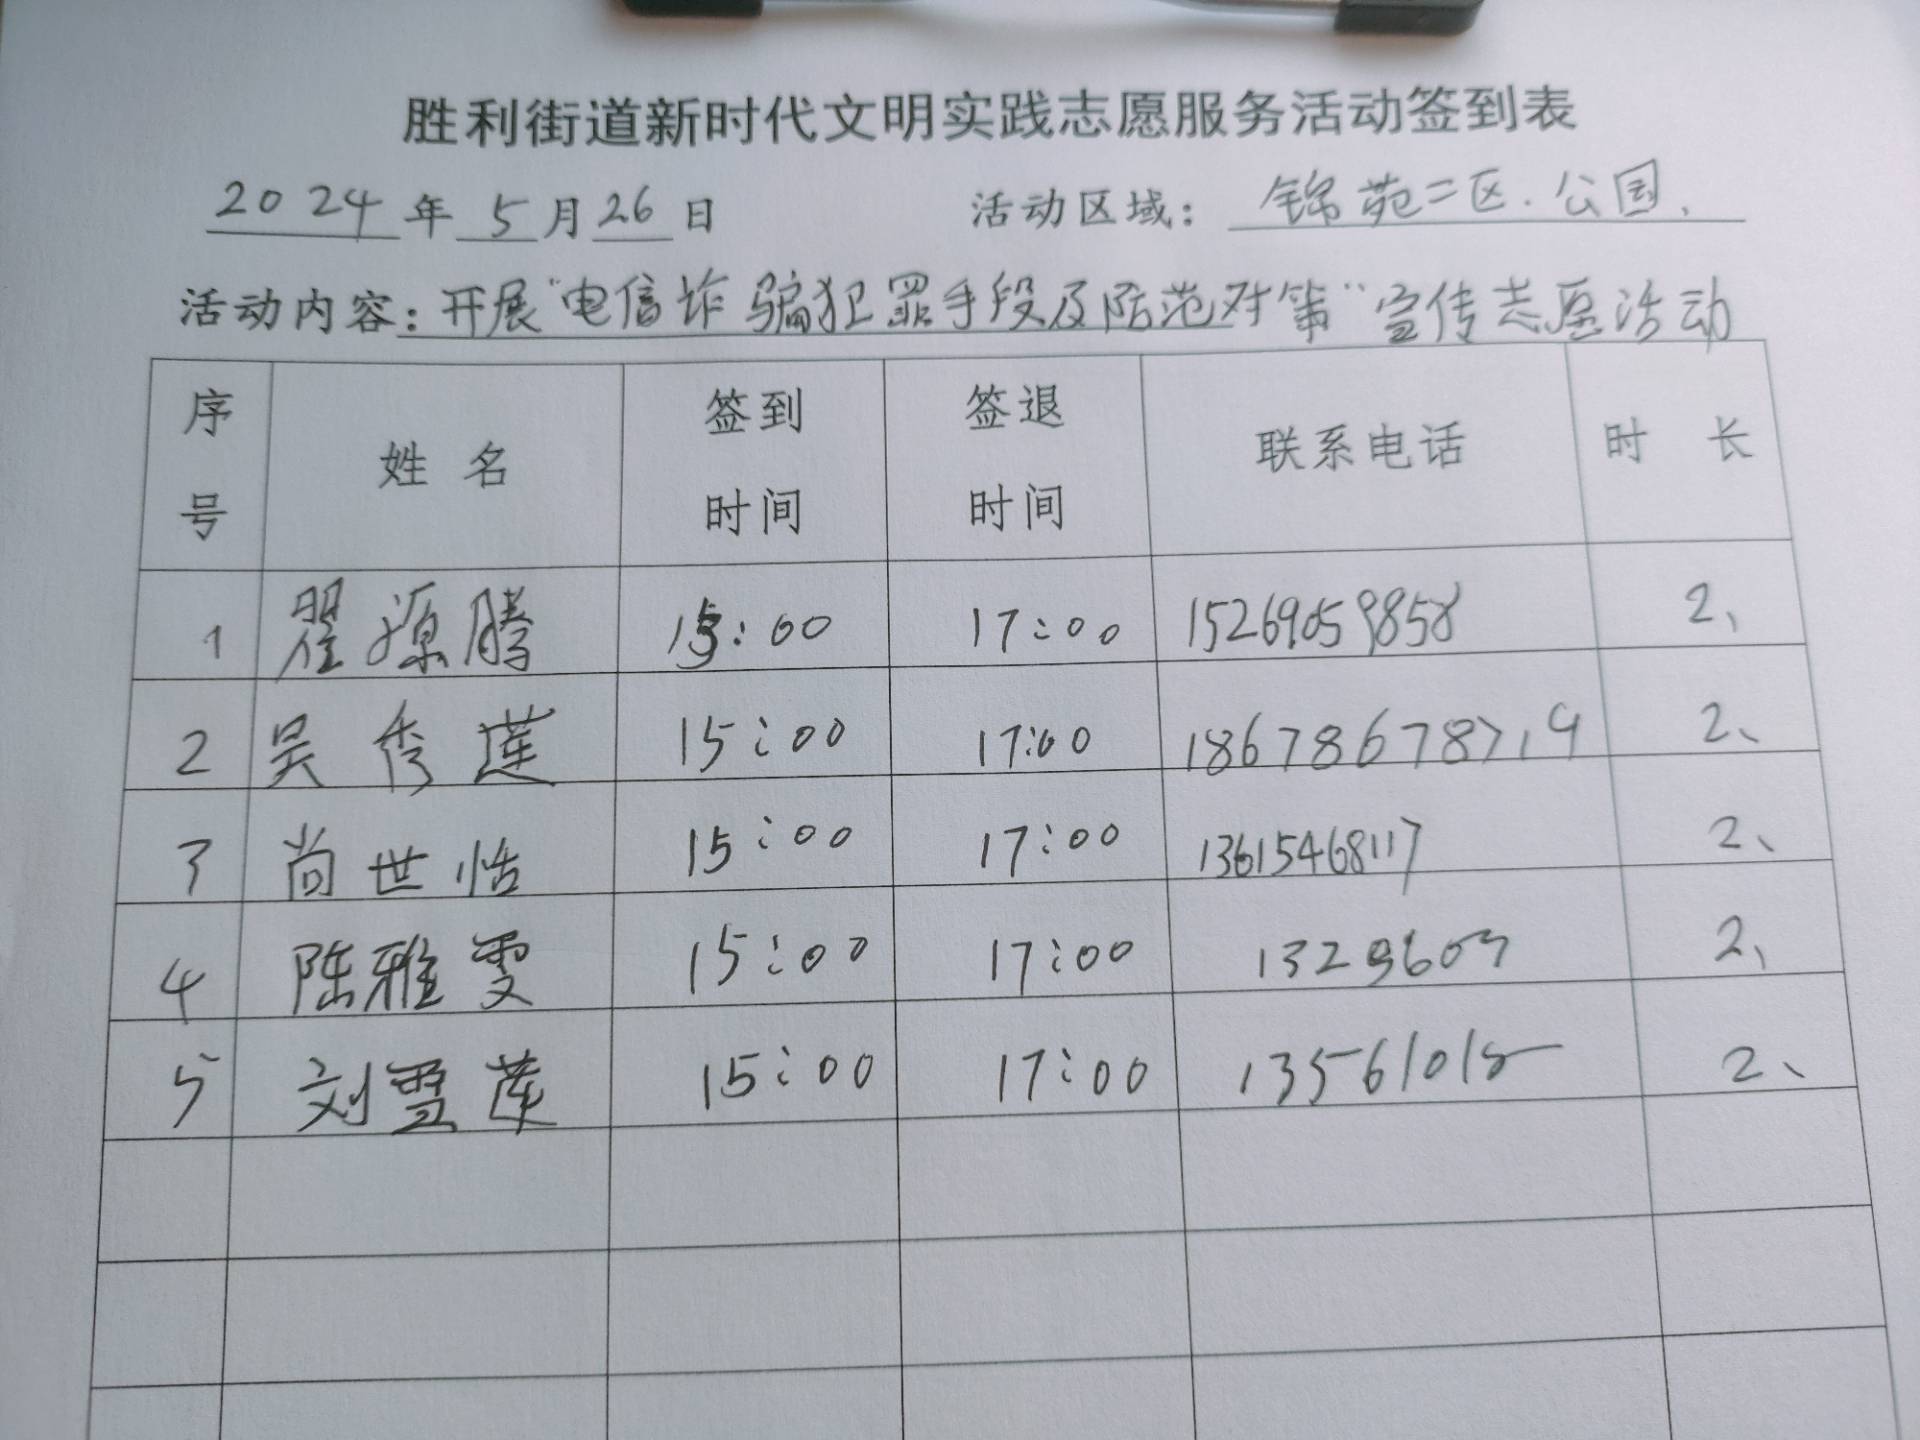 胜利街道新时代文明实践志愿服务活动签到表
2024年5月26日 活动区域：锦苑二区.公园、
活动内容：开展“电信诈骗犯罪手段及防范对策”宣传志愿活动
序号 姓名 签到时间 签退时间 联系电话 时长
1 翟源腾 15:00 17:00 15269059858 2、
2 吴秀莲 15:00 17:00 18678678719 2、
3 尚世恬 15:00 17:00 13615468117 2、
4 陈雅雯 15:00 17:00 1329607 2、
5 刘雪莲 15:00 17:00 13561015 2、